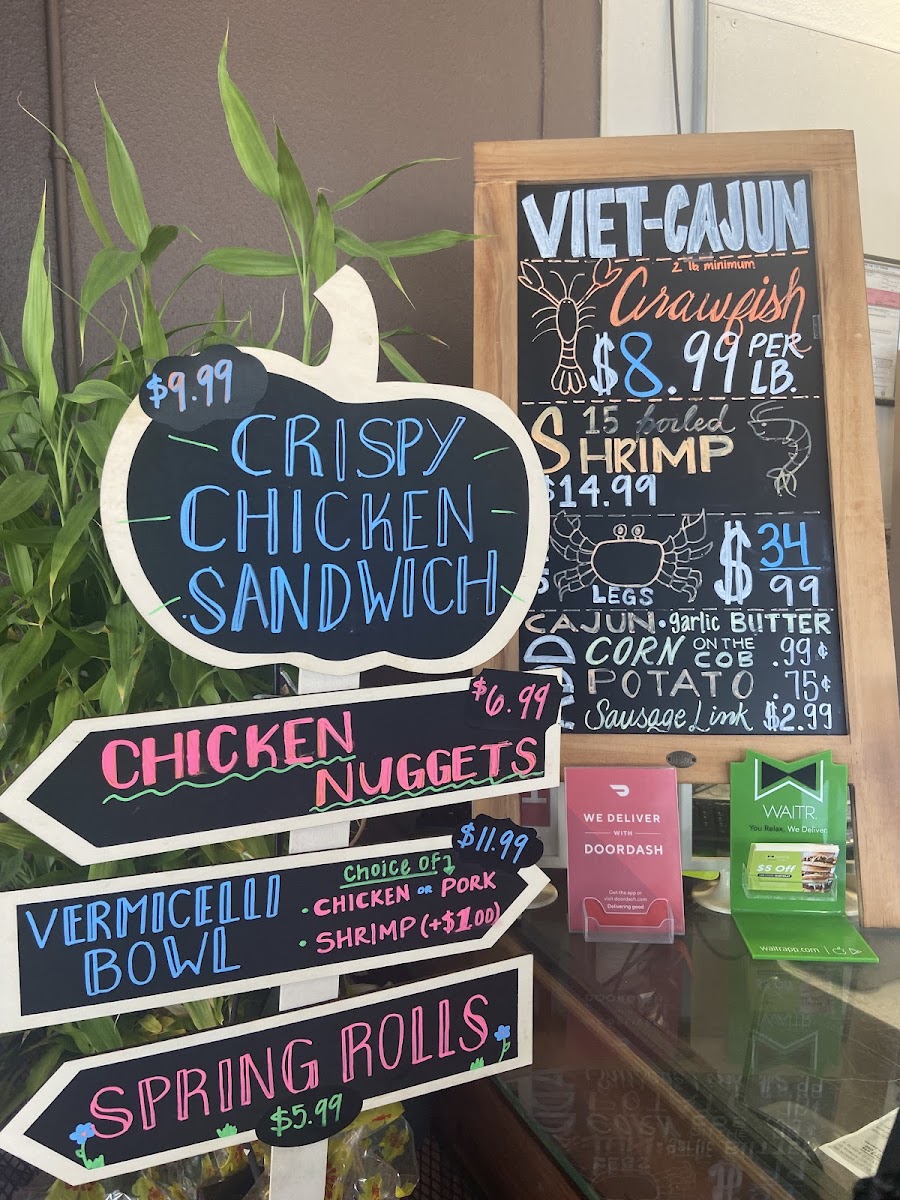 $9.99
CRISPY
CHICKEN
SANDWICH
$6.99
CHICKEN
NUGGETS
$11.99
VERMICELLI
BOWL
Choice of 1
• CHICKEN OR PORK
• SHRIMP (+$1.00)
SPRING ROLLS
$5.99
VIET-CAJUN
2 lb minimum
Crawfish
$8.99 PER
LB.
15 boiled
SHRIMP
$14.99
LEGS
$34
99
CAJUN • garlic BUTTER
CORN ON THE
COB .99¢
POTATO .75¢
Sausage Link $2.99
WE DELIVER
WITH
DOORDASH
Get the app or
visit doordash.com
Delivering good
WAITR.
You Relax, We Deliver
$5 Off
waitrapp.com